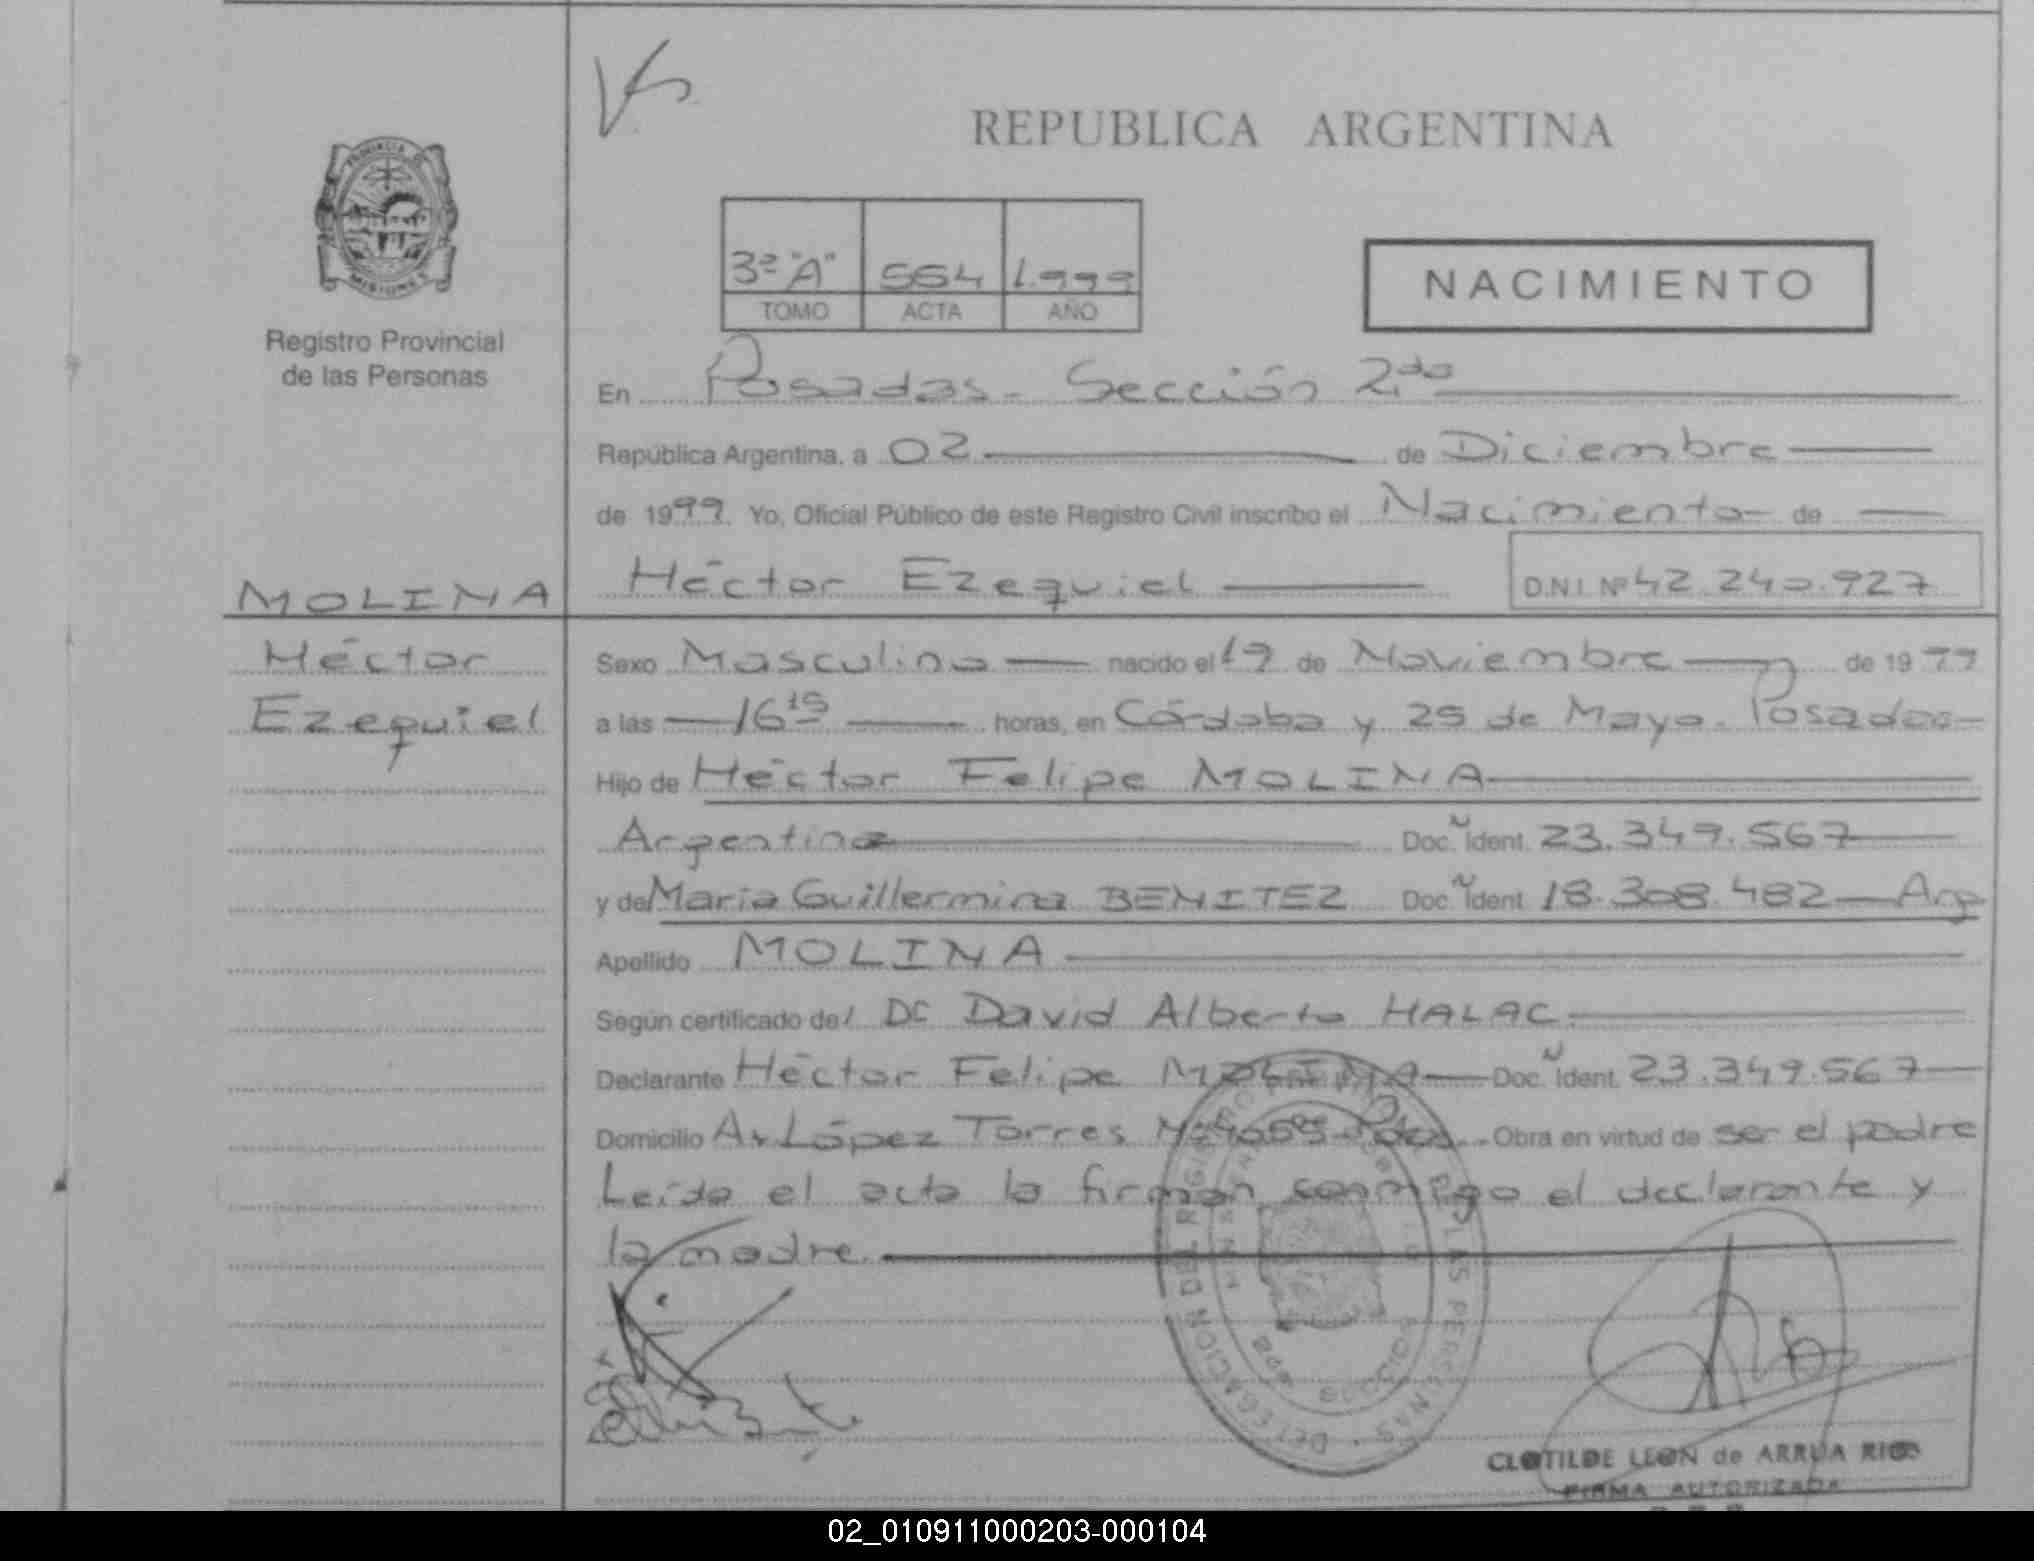 REPUBLICA ARGENTINA
PROVINCIA DE
MISIONES
Registro Provincial
de las Personas
3º "A" 564 1.999
TOMO ACTA AÑO
NACIMIENTO
En Posadas - Sección 2da
República Argentina, a 02 de Diciembre
de 1999. Yo, Oficial Público de este Registro Civil inscribo el Nacimiento de
MOLINA Héctor Ezequiel D.N.I. Nº 42.240.927
Héctor Sexo Masculino nacido el 19 de Noviembre de 1999
Ezequiel a las 16 15 horas, en Córdoba y 25 de Mayo. Posadas
Hijo de Héctor Felipe MOLINA
Argentino Doc. Ident. 23.349.567
y de María Guillermina BENITEZ Doc. Ident. 18.308.482 Arg
Apellido MOLINA
Según certificado del Dr David Alberto HALAC.
Declarante Héctor Felipe MOLINA Doc. Ident. 23.349.567
Domicilio Av López Torres Obra en virtud de ser el padre
Leída el acta la firman conmigo el declarante y
la madre.
DELEGACION DEL REGISTRO LAS PERSONAS
CLOTILDE LEON de ARRUA RIOS
FIRMA AUTORIZADA
02_010911000203-000104